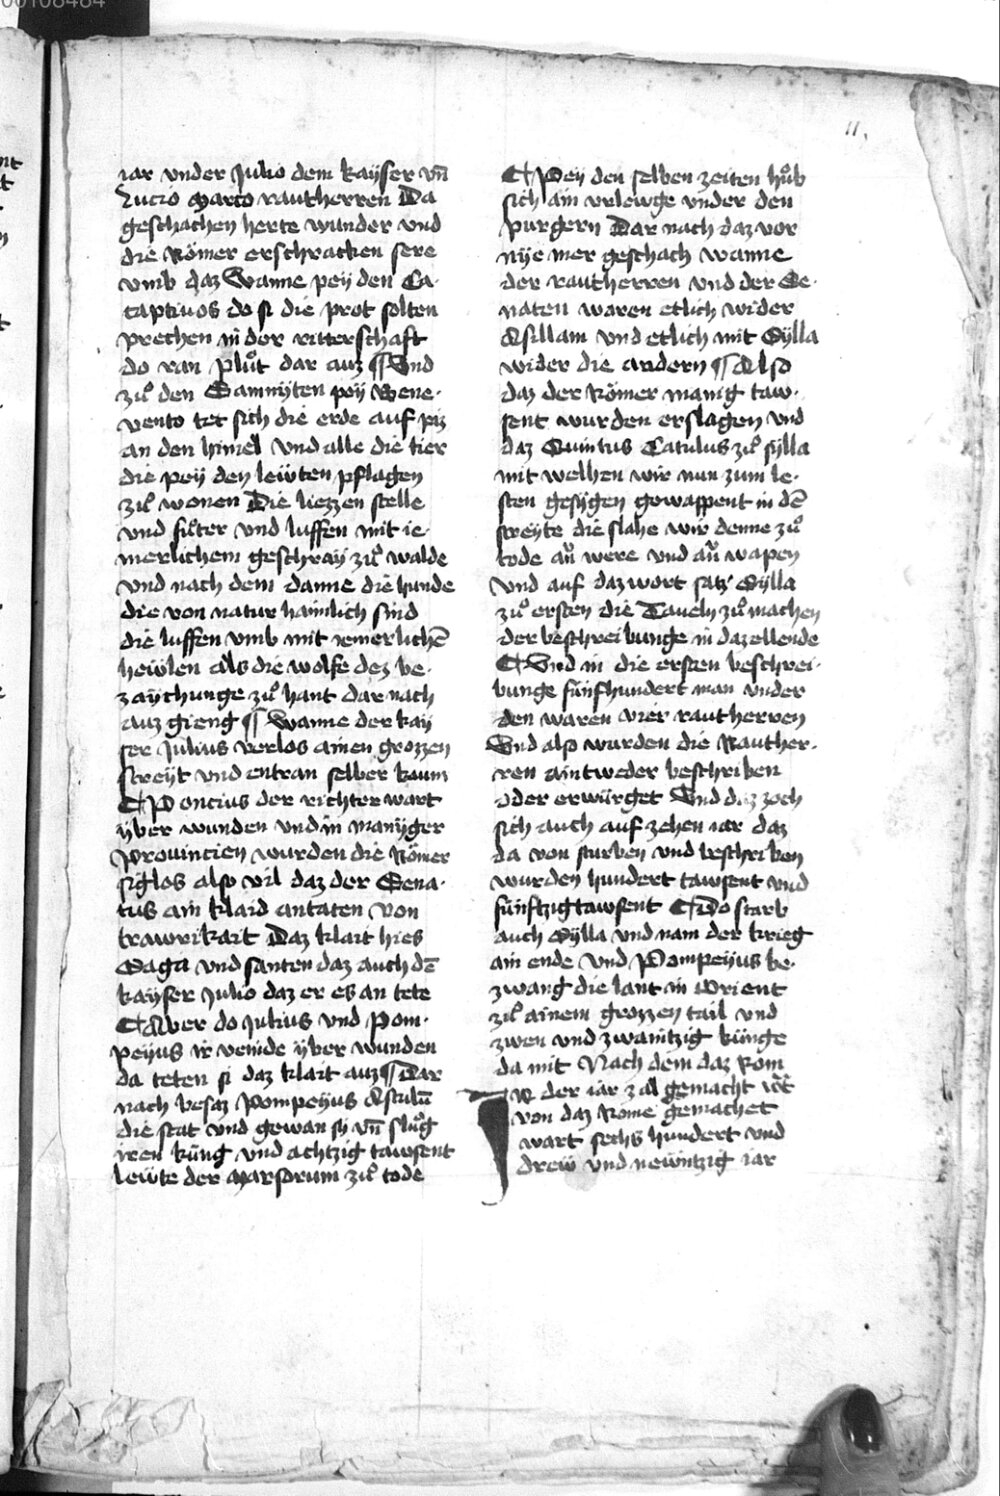 11.
iar vnder Julio dem kayser vn̄
Lucio Marco rautherren Da
geschachen herte wunder vnd
die Römer erschracken sere
vmb daz Wanne pey den Ca-
captiuos do si die prot solten
prechen in der ritterschaft
do ran plůt dar auz ¶ Vnd
zů den Samnyten pey Bene-
vento tet sich die erde auf piz
an den himel vnd alle die tier
die pey den lewten pflagen
zů wonen Die liezzen stelle
vnd fůter vnd luffen mit ie-
merlichem geschray zů walde
vnd nach dem danne die hunde
die von natur haimlich sind
die luffen vmb mit iemerlichē
hewlen als die wolfe dez be-
zaychunge zů hant dar nach
auz gieng ¶ Wanne der kay
ser Julius verlos ainen grozzen
streyt vnd entran selber kaum
¶ Poncius der richter wart
yber wunden vnd in manyger
Prouincien wurden die Römer
siglos also vil daz der Sena-
tus ain klaid antaten von
trawrikait Daz klait hies
Saga vnd santen daz auch dē
kayser Julio daz er es an tete
¶ Aber do Julius vnd Pom-
peyus ir veinde yber wunden
da teten si daz klait auz ¶ Dar
nach besaz Pompeyus Asculū
die stat vnd gewan sy vn̄ slůg
iren küng vnd achtzig tawsent
lewte der Marsorum zů tode
¶ Pey den selben zeiten hůb
sich ain vrlewge vnder den
purgern Dar nach daz vor
nye mer geschach wanne
der rautherren vnd der Se-
naten waren etlich wider
Asillam vnd etlich mit Sylla
wider die andern ¶ Also
daz der Römer manig taw-
sent wurden erslagen vnd
daz Quintus Catulus zů sylla
mit welhen wir nun zum le-
sten gesygen gewappent in dē
streyte die slahe wir denne zů
tode an were vnd an wapen
Vnd auf daz wort satz Sylla
zů ersten die Taueln zů machen
der beschreibunge in daz ellende
¶ Vnd in die ersten beschrei-
bunge fünfhundert man vnder
den waren vier rautherren
Vnd also wurden die Rauther-
ren aintweder beschriben
oder erwürget Vnd daz zoch
sich auch auf zehen iar daz
da von sturben vnd beschriben
wurden hundert tawsent vnd
fünftzigtawsent ¶ Do starb
auch Sylla vnd nam der krieg
ain ende vnd Pompeyus be-
zwang die lant in Orient
zů ainem grozzen tail vnd
zwen vnd zwaintzig künge
da mit Nach dem daz Rom
JN der iar zal gemacht
von daz Rome gemachet
wart sechs hundert vnd
drew vnd newntzig iar